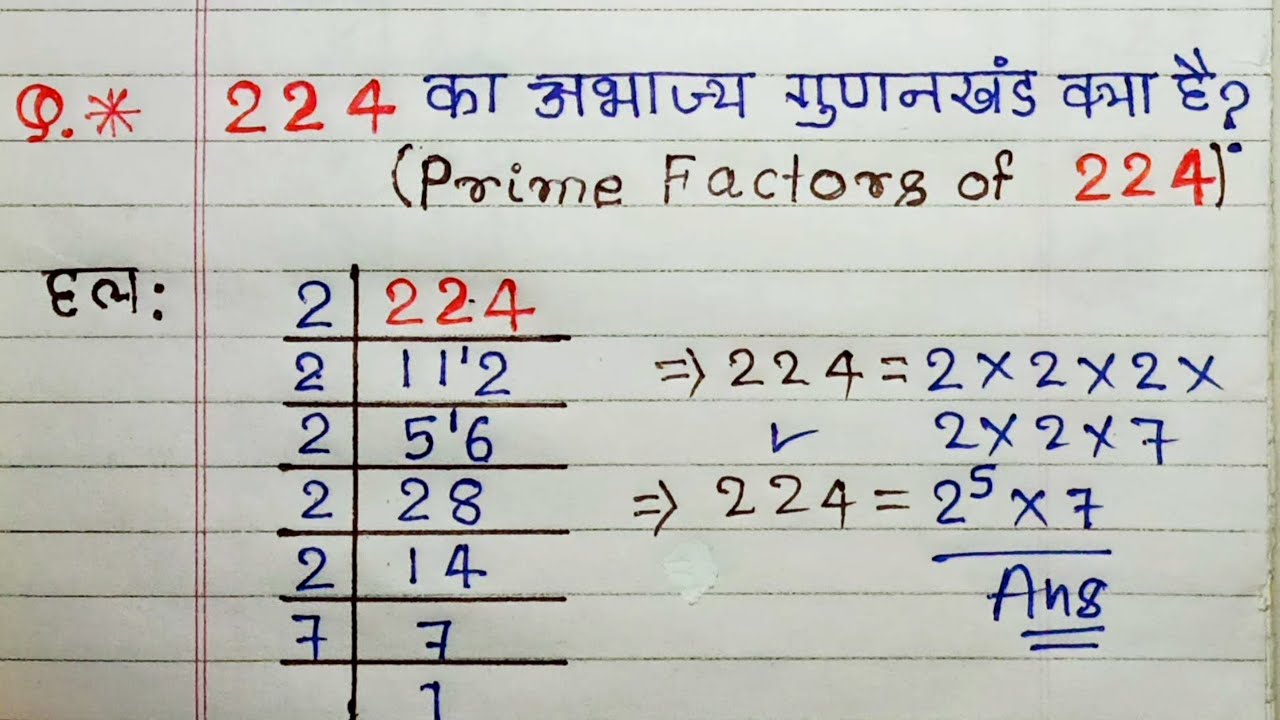 Q.* 224 का अभाज्य गुणनखंड क्या है?
(Prime Factors of 224)
हल:
2 | 224
2 | 11'2
2 | 5'6
2 | 28
2 | 14
7 | 7
1
⇒ 224 = 2 × 2 × 2 ×
2 × 2 × 7
⇒ 224 = 2⁵ × 7
Ans